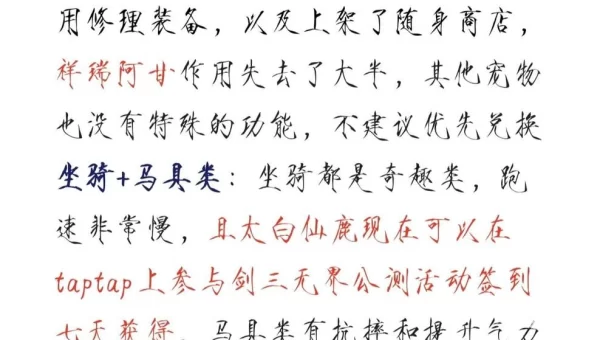 用修理装备，以及上架了随身商店，
祥瑞阿甘作用失去了大半，其他宠物
也没有特殊的功能，不建议优先兑换
坐骑+马具类：坐骑都是奇趣类，跑
速非常慢，且太白仙鹿现在可以在
taptap上参与剑三无界公测活动签到
七天获得，马具类有抗摔和提升气力